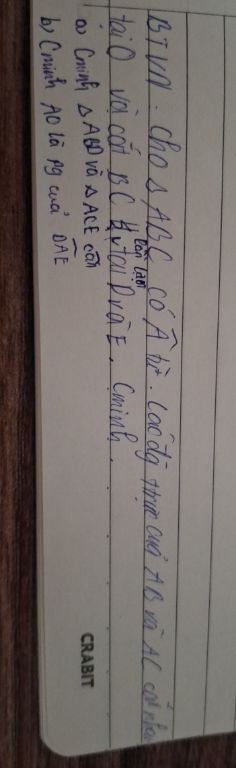 BTVN. Cho Δ ABC có Â tù. Các đg trực của AB và AC cắt nhau
tại O và cắt BC lần lượt tại D và E. Cminh.
a) Cminh Δ ABD và Δ ACE cân
b) Cminh AO là pg của DAE
CRABIT